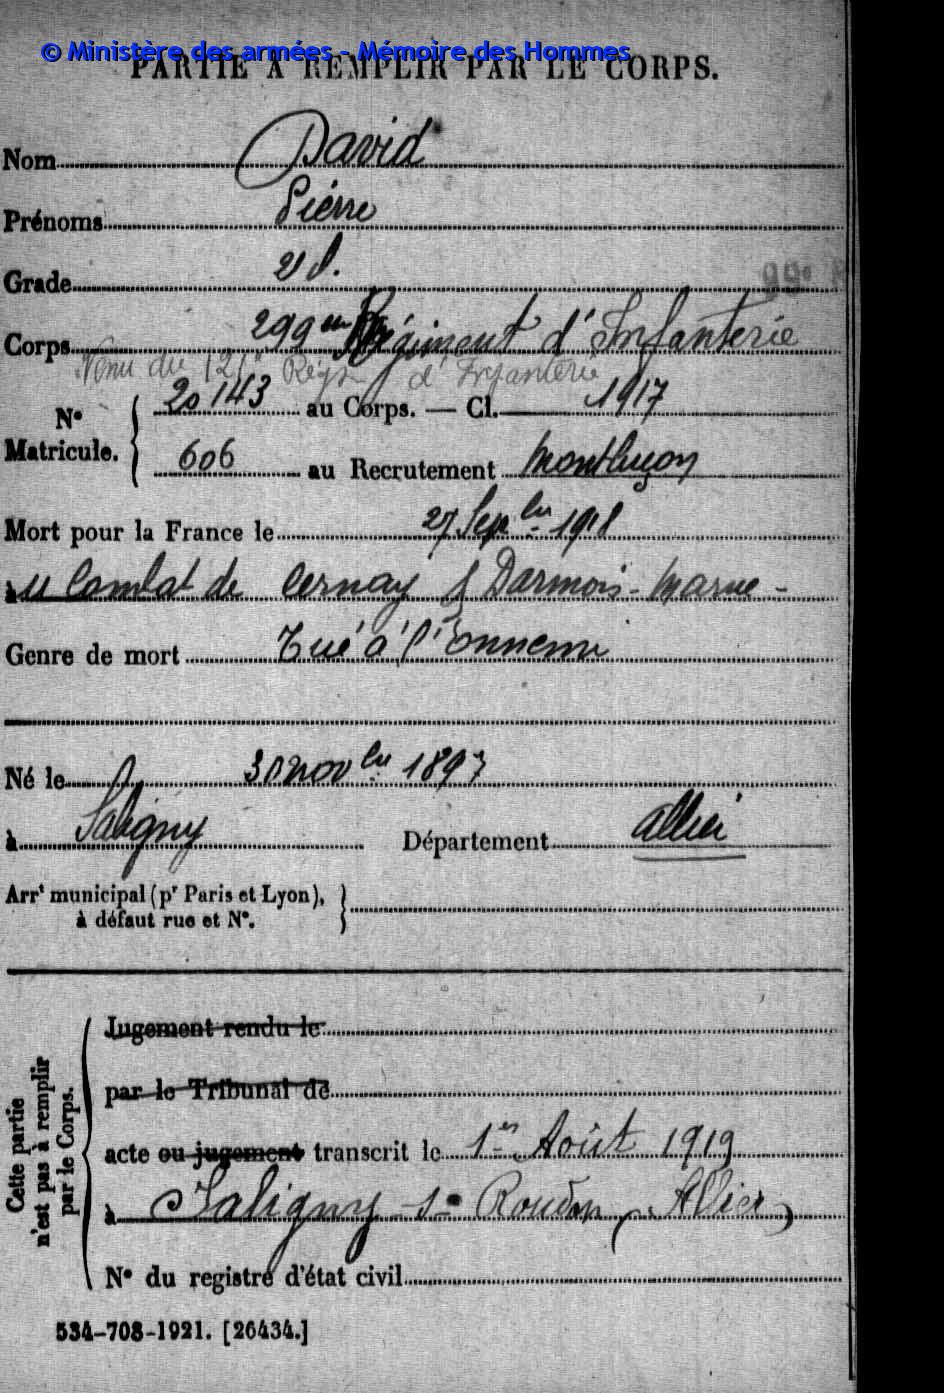 © Ministère des armées - Mémoire des Hommes
PARTIE À REMPLIR PAR LE CORPS.
Nom David
Prénoms Pierre
Grade 2e
99
Corps 299me Régiment d'Infanterie
Venu du 121e Régt d'Infanterie
No Matricule. 20143 au Corps. — Cl. 1917
606 au Recrutement Montluçon
Mort pour la France le 27 Sepbre 1918
à u Combat de Cernay s/ Darmois - Marne -
Genre de mort Tué à l'Ennemi
Né le 30 novbre 1897
à Saligny Département Allier
Arrt municipal (pr Paris et Lyon),
à défaut rue et No.
Cette partie
n'est pas à remplir
par le Corps.
Jugement rendu le
par le Tribunal de
acte ou jugement transcrit le 1er Août 1919
à Saligny s- Roudon (Allier)
No du registre d'état civil
534-708-1921. [26434.]